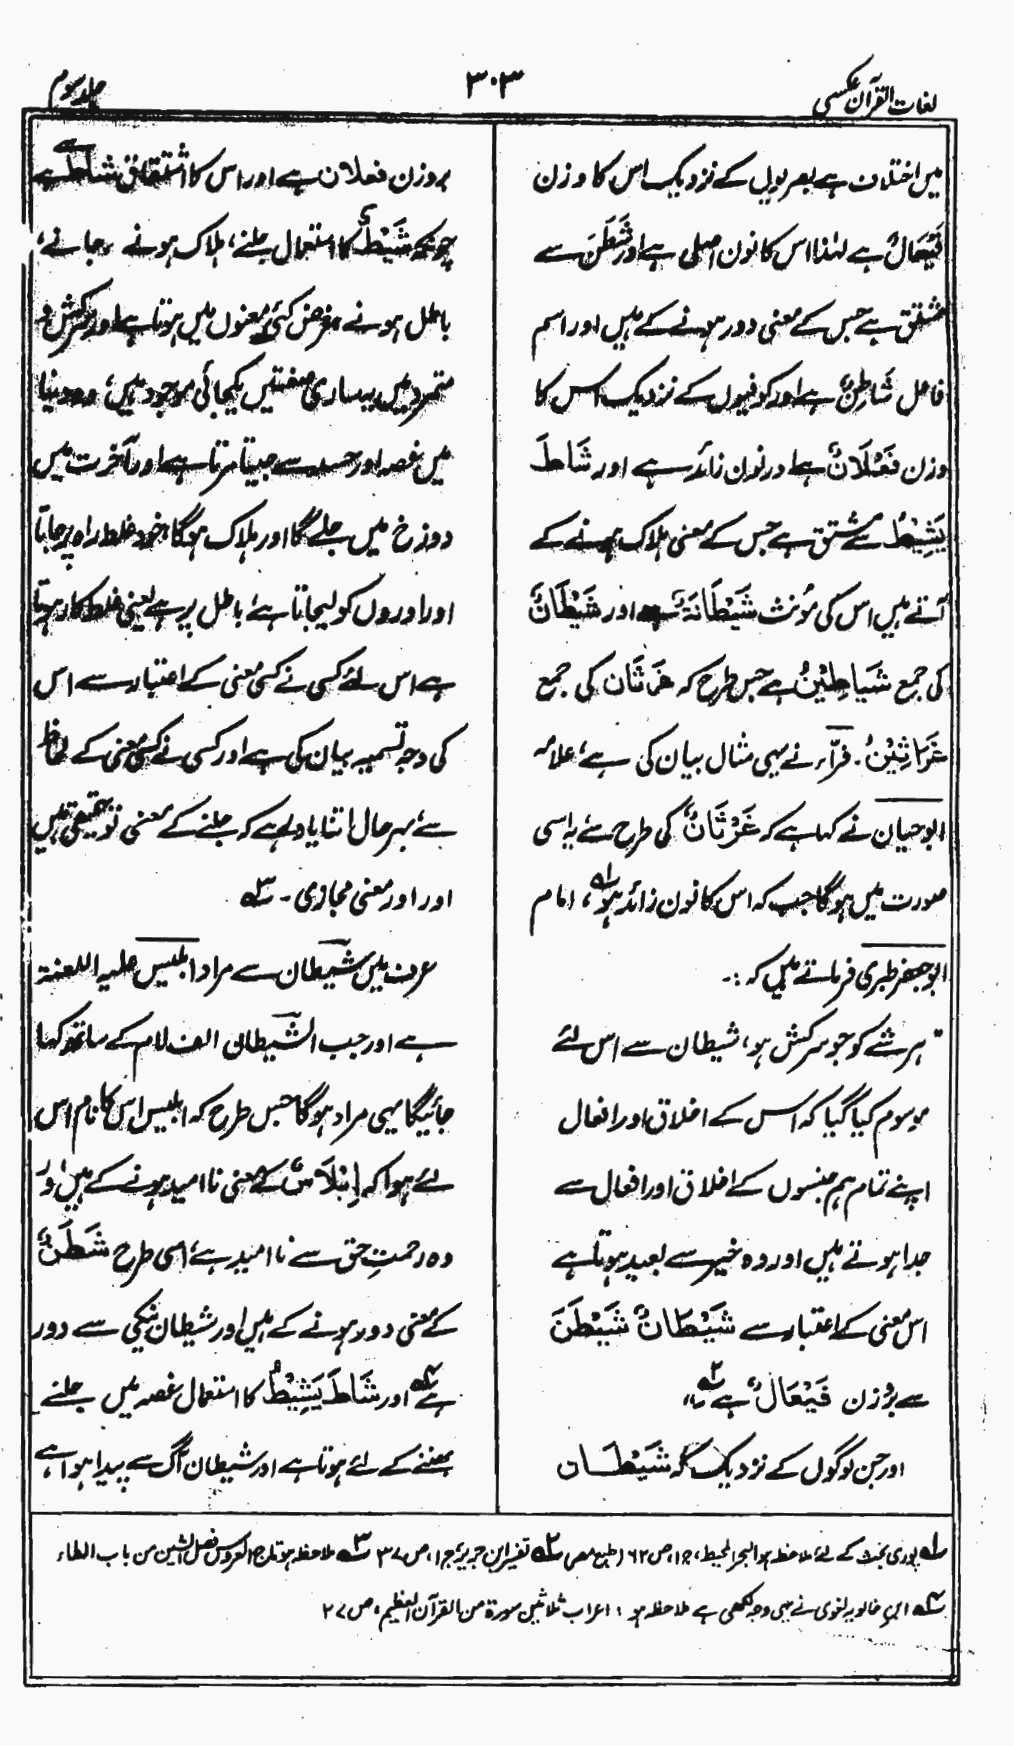 لغات القرآن عکسی
۳۰۳
جلد سوم
میں اختلاف ہے بصریوں کے نزدیک اس کا وزن
فَیْعَالٌ ہے لہٰذا اس کا نون اصلی ہے اور شَطَنَ سے
مشتق ہے جس کے معنی دور ہونے کے ہیں اور اسم
فاعل شَاطِنٌ ہے اور کوفیوں کے نزدیک اس کا
وزن فَعْلَانٌ ہے اور نون زائد ہے اور شَاطَ
یَشِیْطُ سے مشتق ہے جس کے معنی ہلاک ہونے کے
آتے ہیں اس کی مؤنث شَیْطَانَۃٌ ہے اور شَیْطَانٌ
کی جمع شَیَاطِیْنُ ہے جس طرح کہ غَرْثَان کی جمع
غَرَاثِیْنُ۔ فرّاء نے یہی مثال بیان کی ہے، علامہ
ابوحیان نے کہا ہے کہ غَرْثَانٌ کی طرح سے یہ اسی
صورت میں ہوگا جب کہ اس کا نون زائد ہو لہ، امام
ابوجعفر طبری فرماتے ہیں کہ :۔
" ہر شے کو جو سرکش ہو، شیطان سے اس لئے
موسوم کیا گیا کہ اس کے اخلاق اور افعال
اپنے تمام ہم جنسوں کے اخلاق اور افعال سے
جدا ہوتے ہیں اور وہ خیر سے بعید ہوتا ہے
اس معنی کے اعتبار سے شَیْطَانٌ شَیْطَنَ
سے بروزن فَیْعَالٌ ہے ۲؎"
اور جن لوگوں کے نزدیک کہ شَیْطَان
بروزن فعلان ہے اور اس کا اشتقاق شاط سے ہے
چونکہ شَیْطٌ کا استعمال جلنے، ہلاک ہونے
باطل ہونے غرض کئی معنوں میں ہوتا ہے اور سرکش و
متمرد میں یہ ساری صفتیں یکجائی موجود ہیں، وہ دنیا
میں غصہ اور حسد سے جیتا مرتا ہے اور آخرت میں
دوزخ میں جلے گا اور ہلاک ہوگا، خود غلط راہ پر جاتا
اور اوروں کو لیجاتا ہے، باطل پر ہے یعنی غلط کار ہوتا
ہے اس لئے کسی نے کسی معنی کے اعتبار سے اس
کی وجہ تسمیہ بیان کی ہے اور کسی نے کسی معنی کے لحاظ
سے، بہرحال اتنا یاد رہے کہ جلنے کے معنی تو حقیقی ہیں
اور اور معنی مجازی ۔ ۳؎
عرف میں شیطان سے مراد ابلیس علیہ اللعنۃ
ہے اور جب الشیطان الف لام کے ساتھ کہا
جائیگا یہی مراد ہوگا جس طرح کہ ابلیس اس کا نام اس
لئے ہوا کہ اِبْلَاسٌ کے معنی نا امید ہونے کے ہیں اور
وہ رحمتِ حق سے نا امید ہے، اسی طرح شَطَنٌ
کے معنی دور ہونے کے ہیں اور شیطان نیکی سے دور
ہے ۴؎ اور شَاطَ یَشِیْطُ کا استعمال غصہ میں جلنے
بھننے کے لئے ہوتا ہے اور شیطان آگ سے پیدا ہوا ہے،
۱؎ پوری بحث کے لئے ملاحظہ ہو البحر المحیط، ج۱، ص ۶۲ (طبع مصر) ۲؎ تفسیر ابن جریر، ج۱، ص ۳۷ ۳؎ ملاحظہ ہو تاج العروس فصل الشین من باب الطاء
۴؎ ابن خالویہ لغوی نے یہی وجہ لکھی ہے ملاحظہ ہو : اعراب ثلاثین سورۃ من القرآن العظیم، ص ۲۷